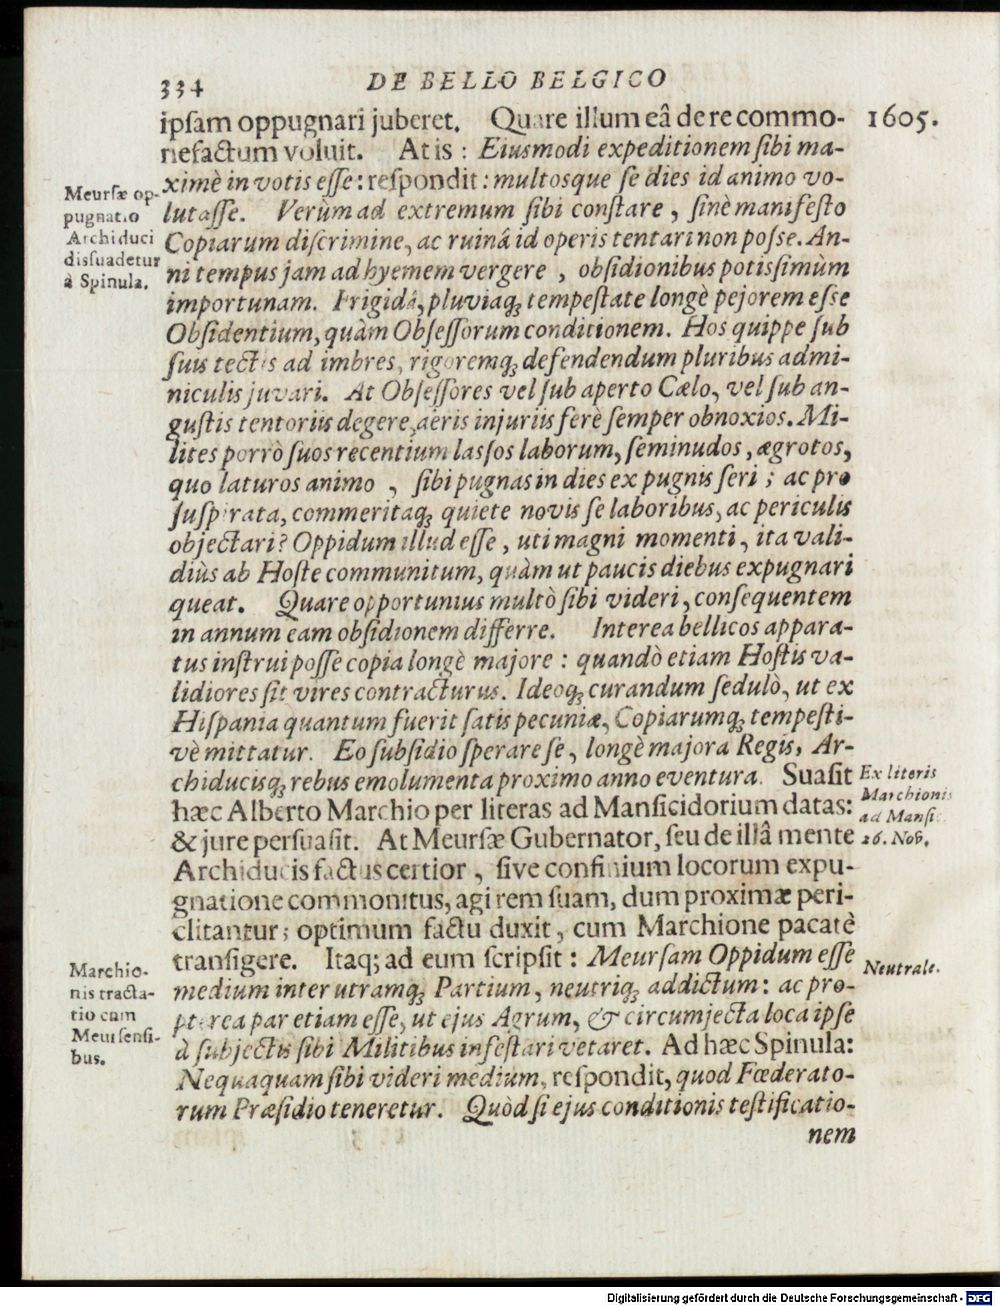 334
DE BELLO BELGICO
1605.
ipſam oppugnari juberet. Quare illum eâ de re commo-
nefactum voluit. At is : Eiusmodi expeditionem ſibi ma-
ximè in votis eſſe : reſpondit : multosque ſe dies id animo vo-
lutaſſe. Verùm ad extremum ſibi conſtare , ſinè manifeſto
Copiarum diſcrimine, ac ruinâ id operis tentari non poſse. An-
ni tempus jam ad hyemem vergere , obſidionibus potiſſimùm
importunam. Frigidâ, pluviaq; tempeſtate longè pejorem eſse
Obſidentium, quàm Obſeſſorum conditionem. Hos quippe ſub
ſuis tectis ad imbres, rigoremq; defendendum pluribus admi-
niculis juvari. At Obſeſſores vel ſub aperto Cælo, vel ſub an-
guſtis tentoriis degere, aëris injuriis ferè ſemper obnoxios. Mi-
lites porrò ſuos recentium laſſos laborum, ſeminudos , ægrotos,
quo laturos animo , ſibi pugnas in dies ex pugnis ſeri ; ac pro
ſuſpirata, commeritaq; quiete novis ſe laboribus, ac periculis
objectari? Oppidum illud eſſe , uti magni momenti , ita vali-
diùs ab Hoſte communitum, quàm ut paucis diebus expugnari
queat. Quare opportunius multò ſibi videri, conſequentem
in annum eam obſidionem differre. Interea bellicos appara-
tus inſtrui poſſe copia longè majore : quandò etiam Hoſtis va-
lidiores ſit vires contracturus. Ideoq; curandum ſedulò, ut ex
Hiſpania quantum fuerit ſatis pecuniæ, Copiarumq; tempeſti-
vè mittatur. Eo ſubſidio ſperare ſe , longè majora Regis, Ar-
chiducisq; rebus emolumenta proximo anno eventura. Suaſit
hæc Alberto Marchio per literas ad Manſicidorium datas:
& jure perſuaſit. At Meurſæ Gubernator, ſeu de illâ mente
Archiducis factus certior , ſive confinium locorum expu-
gnatione commonitus, agi rem ſuam, dum proximæ peri-
clitantur; optimum factu duxit, cum Marchione pacatè
tranſigere. Itaq; ad eum ſcripſit : Meurſam Oppidum eſſe
medium inter utramq; Partium, neutriq; addictum : ac pro-
pterea par etiam eſſe, ut ejus Agrum, & circumjecta loca ipſe
à ſubjectis ſibi Militibus infeſtari vetaret. Ad hæc Spinula:
Nequaquam ſibi videri medium, reſpondit, quod Fœderato-
rum Præſidio teneretur. Quòd ſi ejus conditionis teſtificatio-
nem
Meurſæ op-
pugnatio
Archiduci
diſſuadetur
à Spinula.
Ex literis
Marchionis
ad Manſi-
26. Nov.
Marchio-
nis tracta-
tio cum
Meurſenſi-
bus.
Neutrale.
Digitalisierung gefördert durch die Deutsche Forschungsgemeinschaft - DFG